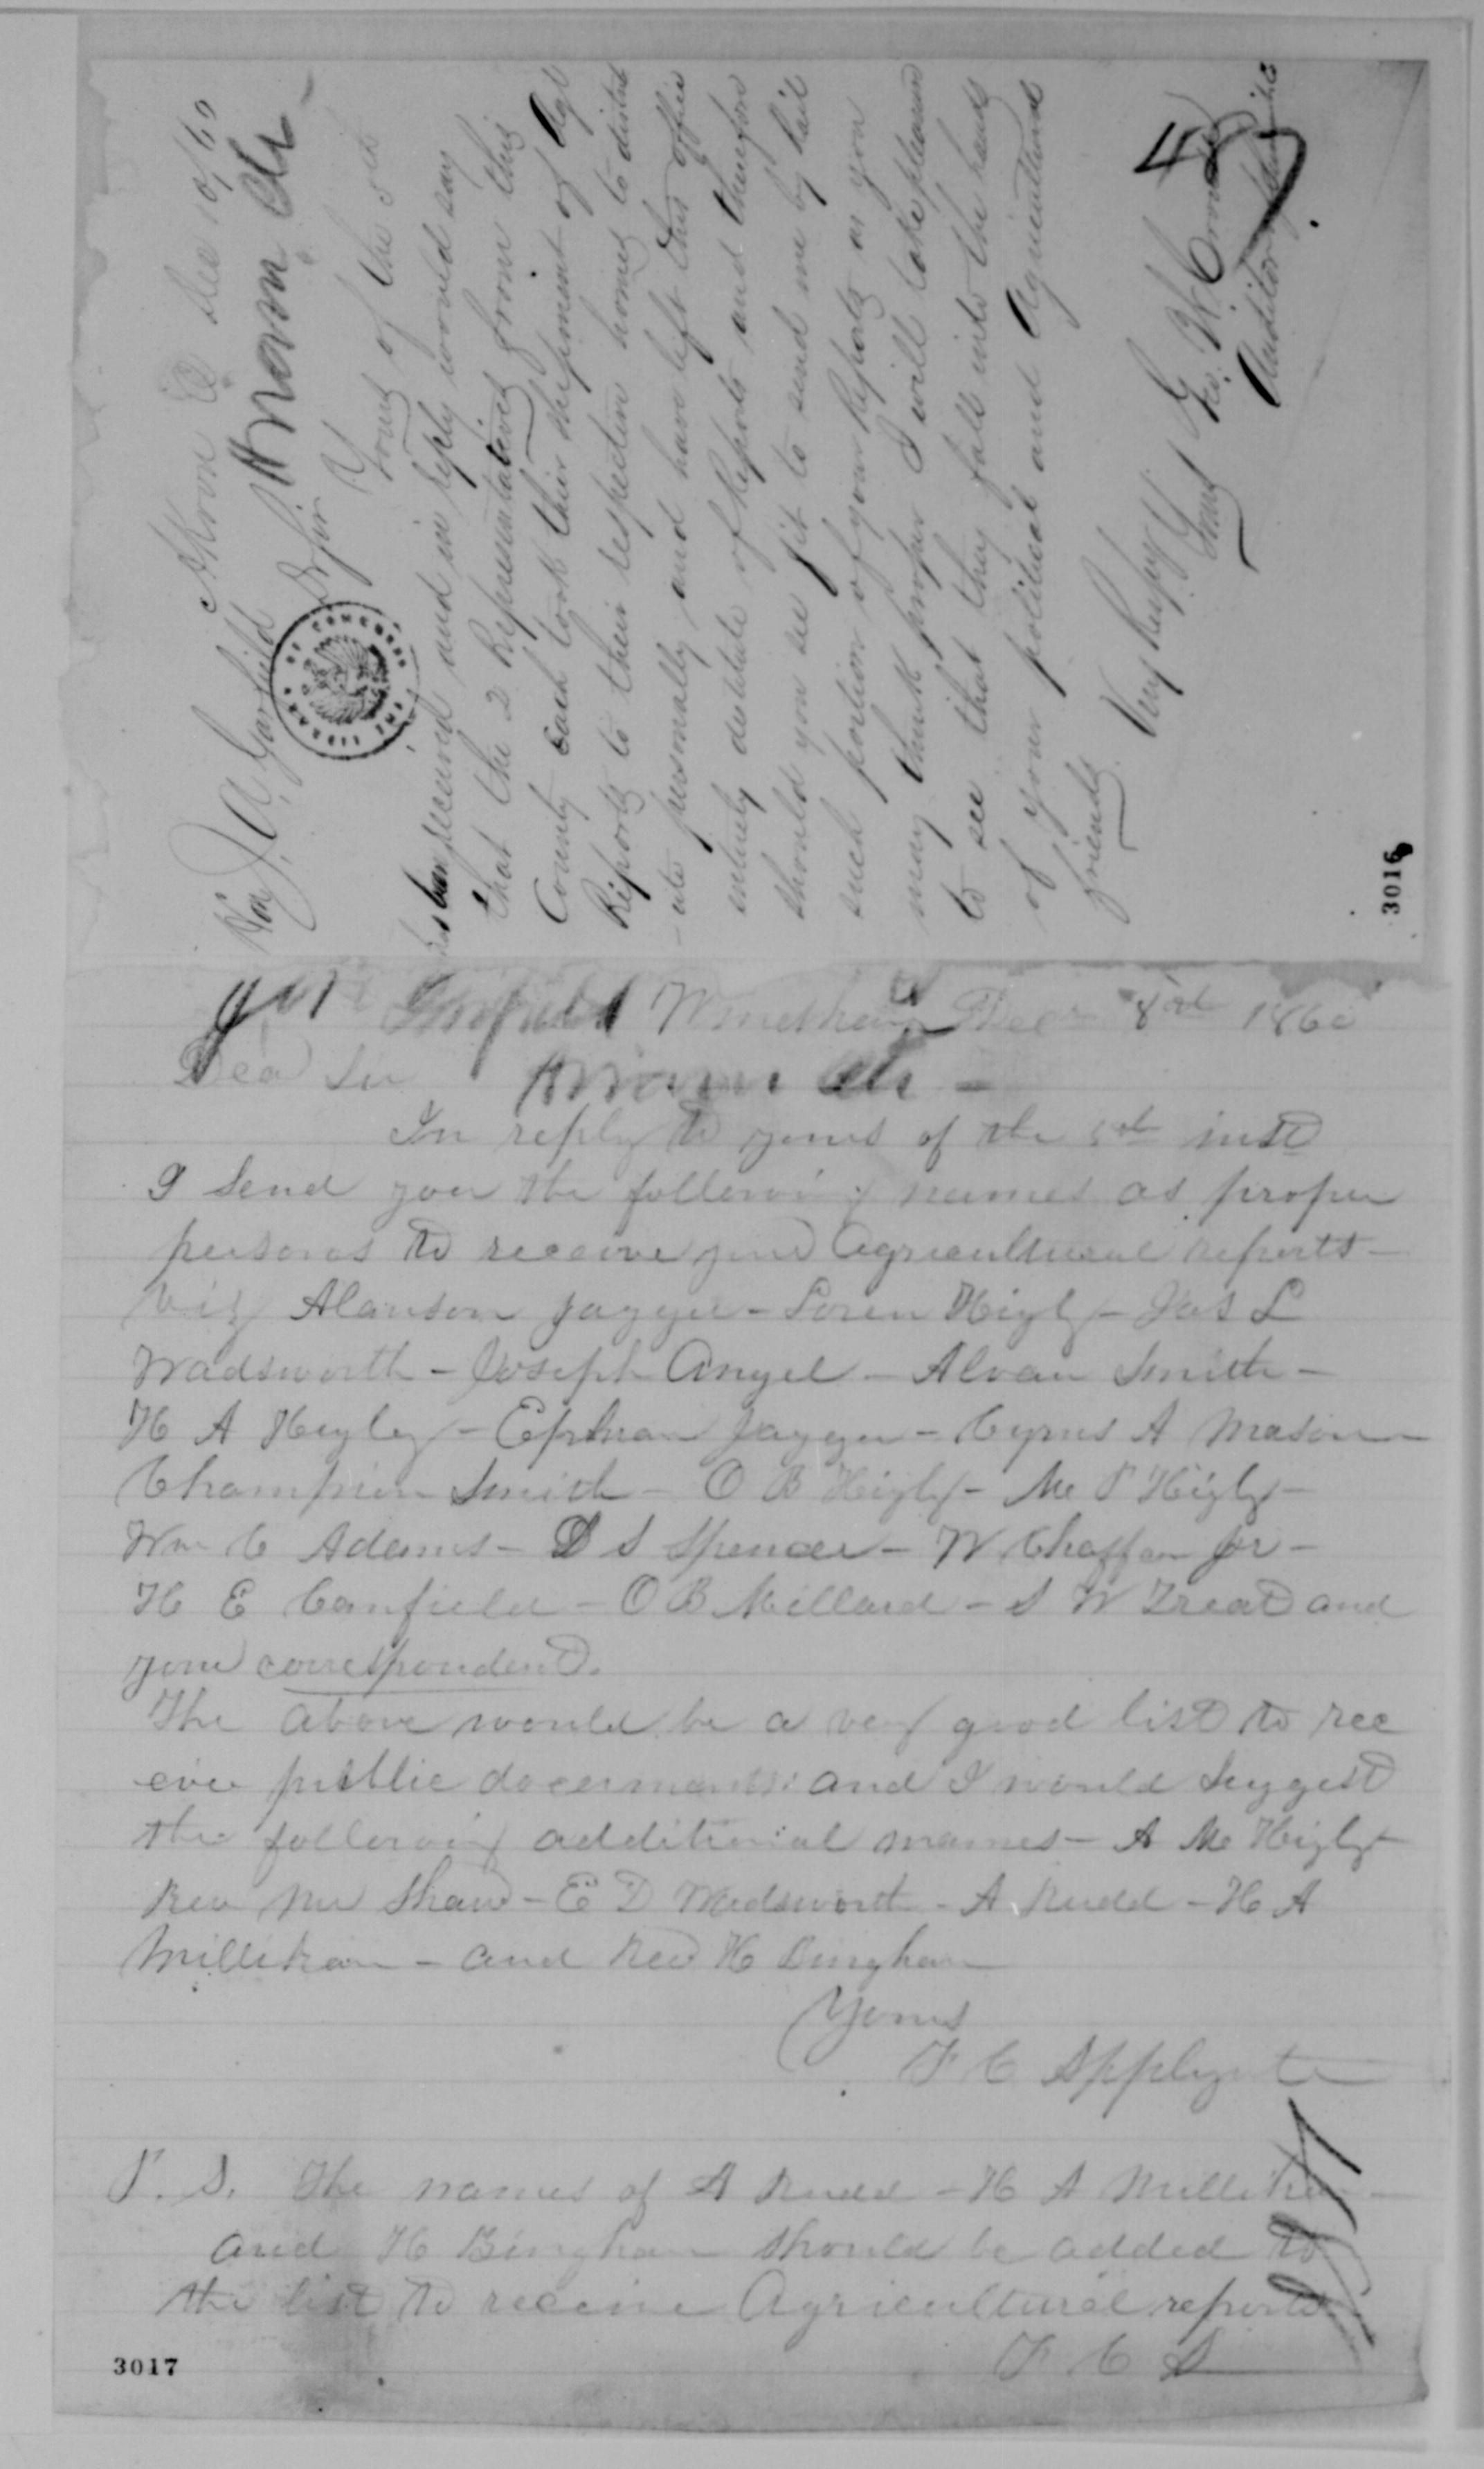 Akron O Dec 10/60
Hon J. A. Garfield
D Sir Yours of the 5th
has been received and in reply would say
that the 2 Representatives from this
County each took their shipment of Agl
Reports to their respective homes to distrib
-ute personally and have left this office
entirely destitute of Reports and therefore
should you see fit to send me by rail
such portion of your Reports as you
may think proper I will take pleasure
to see that they fall into the hands
of your political and Agricultural
friends
Very Respy Yours
Geo. W.
Auditor
3016
Windham Dec 8th 1860
Dear Sir
In reply to yours of the 5th inst
I send you the following names as proper
persons to receive your Agricultural reports
Viz Alanson Jagger - Loren Higly - Jas L
Wadsworth - Joseph Angel - Alvan Smith -
H A Higley - Ephram Jagger - Cyrus A Mason
Champion Smith - O B Higly - M P Higly -
Wm C Adams - D S Spencer - W Chaffee Jr -
H E Canfield - O B Millard - S W Treat and
your correspondent.
The above would be a very good list to rec
eive public documents: and I would suggest
the following additional names - A M Higly
Rev Mr Shaw - E D Wadsworth - A Rudd - H A
Millikan - and Rev H Bingham
Yours
F C Applegate
P. S. The names of A Rudd - H A Millikan
and H Bingham should be added to
the list to receive Agricultural reports
F C A
3017